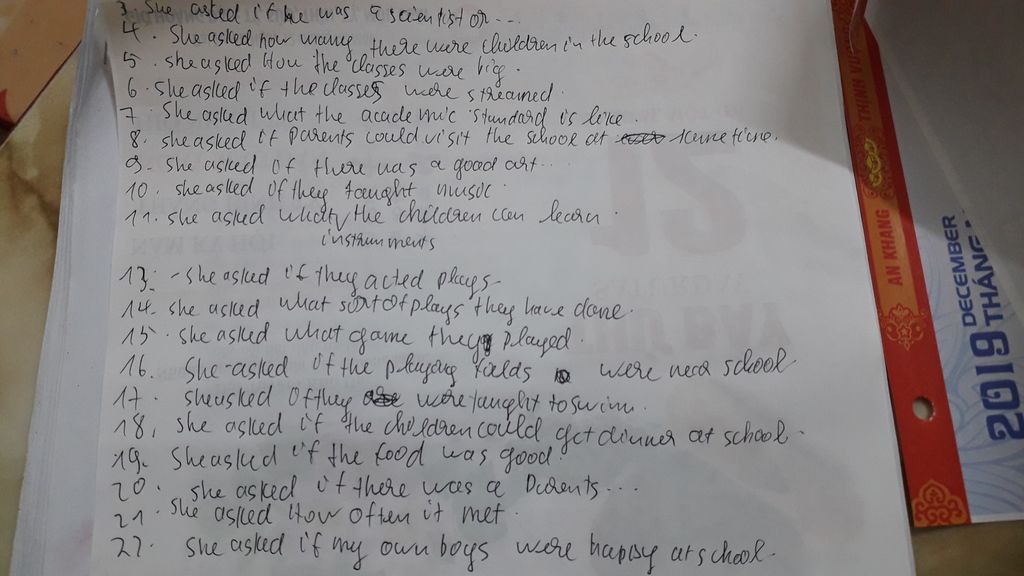 3. She asked if he was a scientist or ...
4. She asked how many there were children in the school.
5. she asked How the classes were big.
6. She asked if the classes were streamed.
7. She asked what the academic standard is like.
8. she asked if parents could visit the school at
9. She asked if there was a good art...
10. she asked if they taught music.
11. she asked what the children can learn.
instruments
13. - she asked if they acted plays
14. she asked what sort of plays they have done.
15. she asked what game they played.
16. She asked if the playing fields were near school
17. she asked if they were taught to swim.
18, she asked if the children could get dinner at school.
19. She asked if the food was good.
20. she asked if there was a parents...
21. she asked How often it met.
22. she asked if my own boys were happy at school.
THỊNH VƯỢNG
AN KHANG
DECEMBER
2019 THÁNG